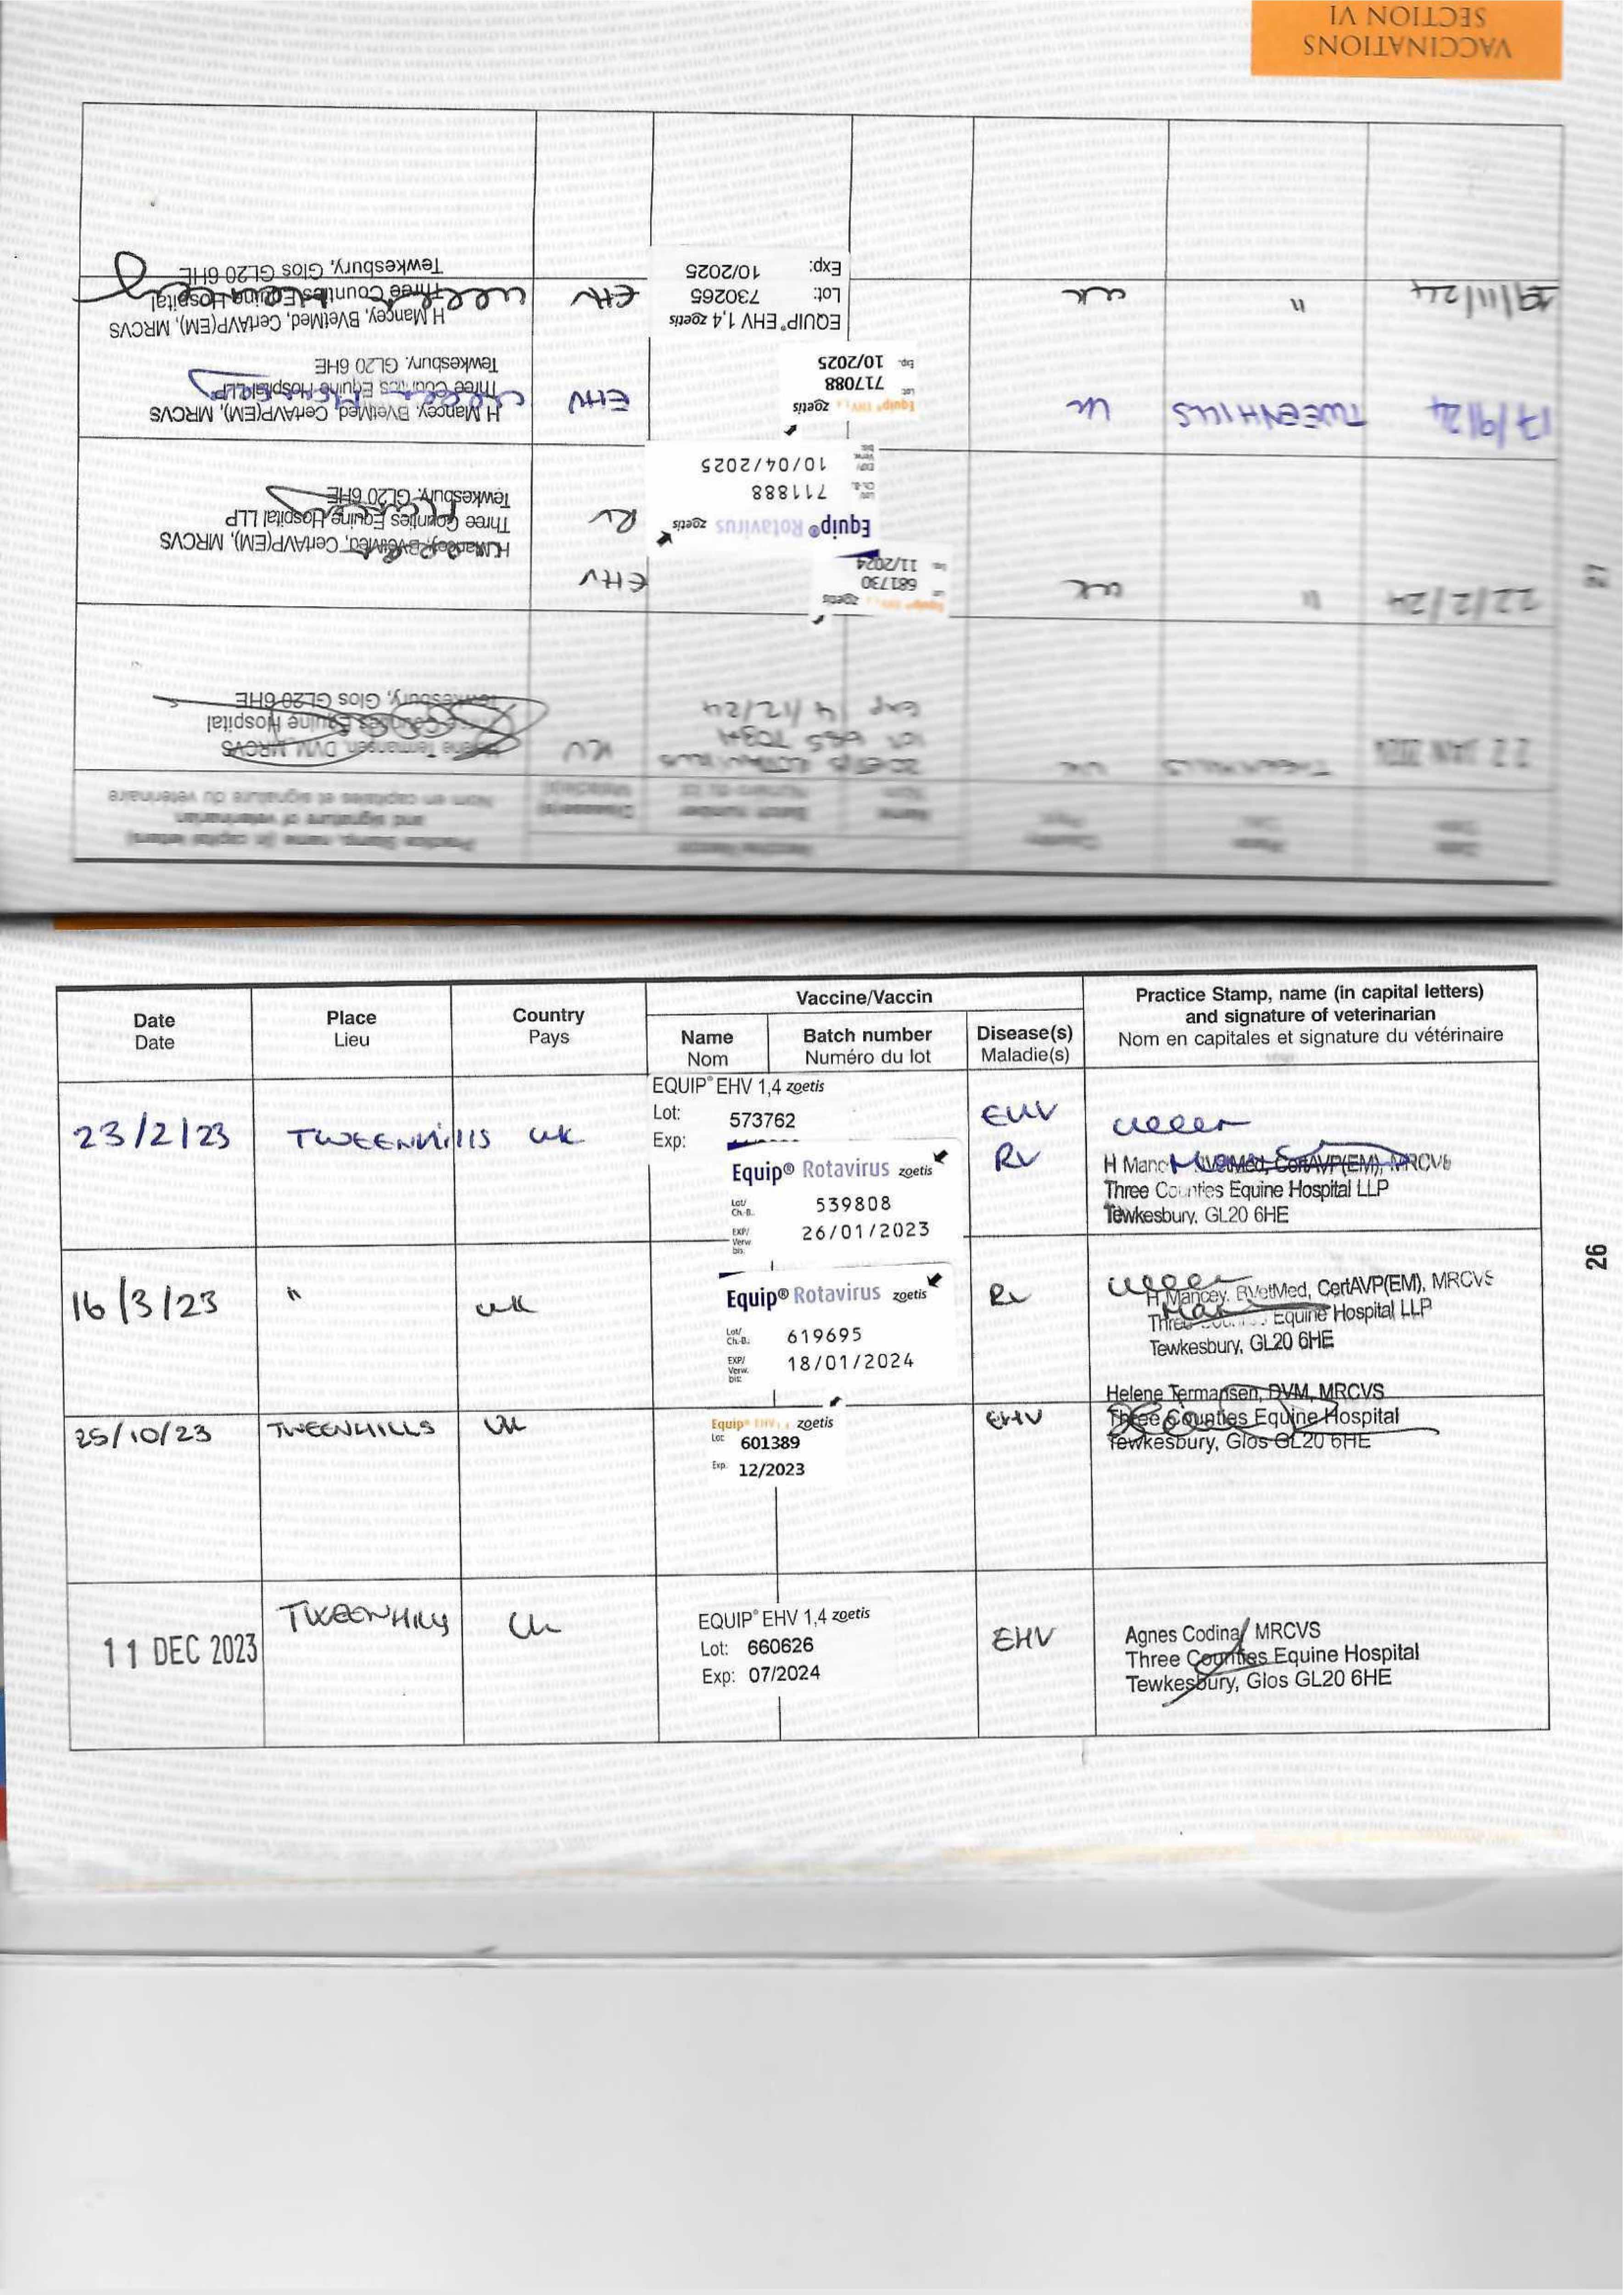 VACCINATIONS
SECTION VI
27
Date
Date
Place
Lieu
Country
Pays
Vaccine/Vaccin
Name
Nom
Batch number
Numéro du lot
Disease(s)
Maladie(s)
Practice Stamp, name (in capital letters)
and signature of veterinarian
Nom en capitales et signature du vétérinaire
22 JAN 2024
TWEENHILLS
UK
Exp 14/12/24
RV
Helene Termansen, DVM, MRCVS
Three Counties Equine Hospital
Tewkesbury, Glos GL20 6HE
22/2/24
"
UK
Equip® EHV zoetis
Lot 681730
Exp. 11/2024
EHV
Equip® Rotavirus zoetis
Lot/ Ch.-B. 711888
EXP/ Verw. bis: 10/04/2025
RV
H Mancey, BVetMed, CertAVP(EM), MRCVS
Three Counties Equine Hospital LLP
Tewkesbury, GL20 6HE
17/9/24
TWEENHILLS
UK
Equip® EHV zoetis
Lot 717088
Exp. 10/2025
EHV
H Mancey, BVetMed, CertAVP(EM), MRCVS
Three Counties Equine Hospital LLP
Tewkesbury, GL20 6HE
19/11/24
"
UK
EQUIP® EHV 1,4 zoetis
Lot: 730265
Exp: 10/2025
EHV
H Mancey, BVetMed, CertAVP(EM), MRCVS
Three Counties Equine Hospital
Tewkesbury, Glos GL20 6HE
Date
Date
Place
Lieu
Country
Pays
Vaccine/Vaccin
Name
Nom
Batch number
Numéro du lot
Disease(s)
Maladie(s)
Practice Stamp, name (in capital letters)
and signature of veterinarian
Nom en capitales et signature du vétérinaire
23/2/23
TWEENHILLS
UK
EQUIP® EHV 1,4 zoetis
Lot: 573762
Exp:
EHV
Equip® Rotavirus zoetis
Lot/ Ch.-B. 539808
EXP/ Verw. bis: 26/01/2023
RV
H Mancey, BVetMed, CertAVP(EM), MRCVS
Three Counties Equine Hospital LLP
Tewkesbury, GL20 6HE
16/3/23
"
UK
Equip® Rotavirus zoetis
Lot/ Ch.-B. 619695
EXP/ Verw. bis: 18/01/2024
RV
H Mancey, BVetMed, CertAVP(EM), MRCVS
Three Counties Equine Hospital LLP
Tewkesbury, GL20 6HE
25/10/23
TWEENHILLS
UK
Equip® EHV zoetis
Lot: 601389
Exp. 12/2023
EHV
Helene Termansen, DVM, MRCVS
Three Counties Equine Hospital
Tewkesbury, Glos GL20 6HE
11 DEC 2023
TWEENHILLS
UK
EQUIP® EHV 1,4 zoetis
Lot: 660626
Exp: 07/2024
EHV
Agnes Codina MRCVS
Three Counties Equine Hospital
Tewkesbury, Glos GL20 6HE
26